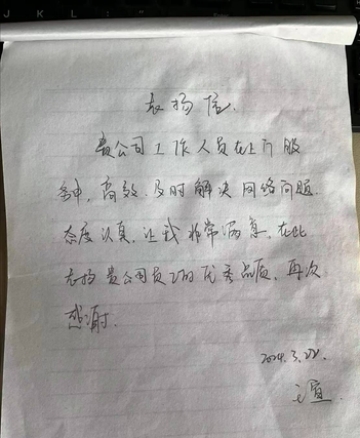 表扬信.
贵公司工作人员在上门服
务中, 高效.及时解决网络问题.
态度认真. 让我非常满意. 在此
表扬贵公司员工的优秀品质. 再次
感谢.
2024.3.22.